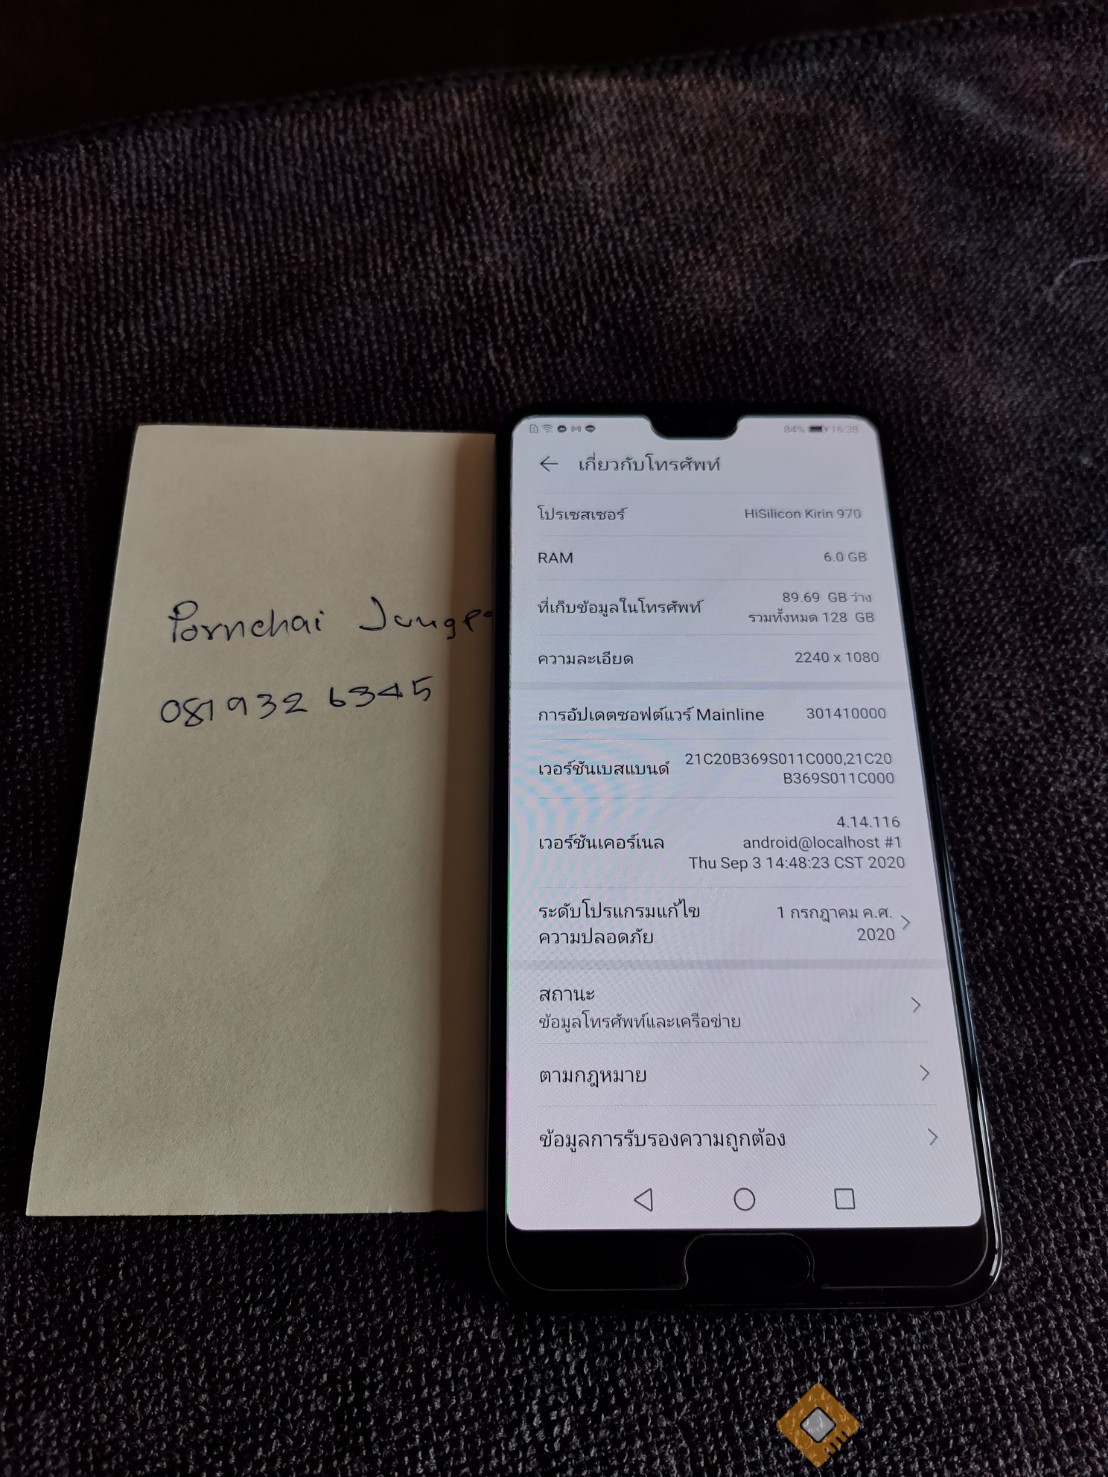 Pornchai
081 932 6345
84% 16:38
เกี่ยวกับโทรศัพท์
โปรเซสเซอร์ HiSilicon Kirin 970
RAM 6.0 GB
ที่เก็บข้อมูลในโทรศัพท์ 89.69 GB ว่าง
รวมทั้งหมด 128 GB
ความละเอียด 2240 x 1080
การอัปเดตซอฟต์แวร์ Mainline 301410000
เวอร์ชันเบสแบนด์ 21C20B369S011C000,21C20
B369S011C000
เวอร์ชันเคอร์เนล 4.14.116
android@localhost #1
Thu Sep 3 14:48:23 CST 2020
ระดับโปรแกรมแก้ไข 1 กรกฎาคม ค.ศ.
ความปลอดภัย 2020
สถานะ
ข้อมูลโทรศัพท์และเครือข่าย
ตามกฎหมาย
ข้อมูลการรับรองความถูกต้อง